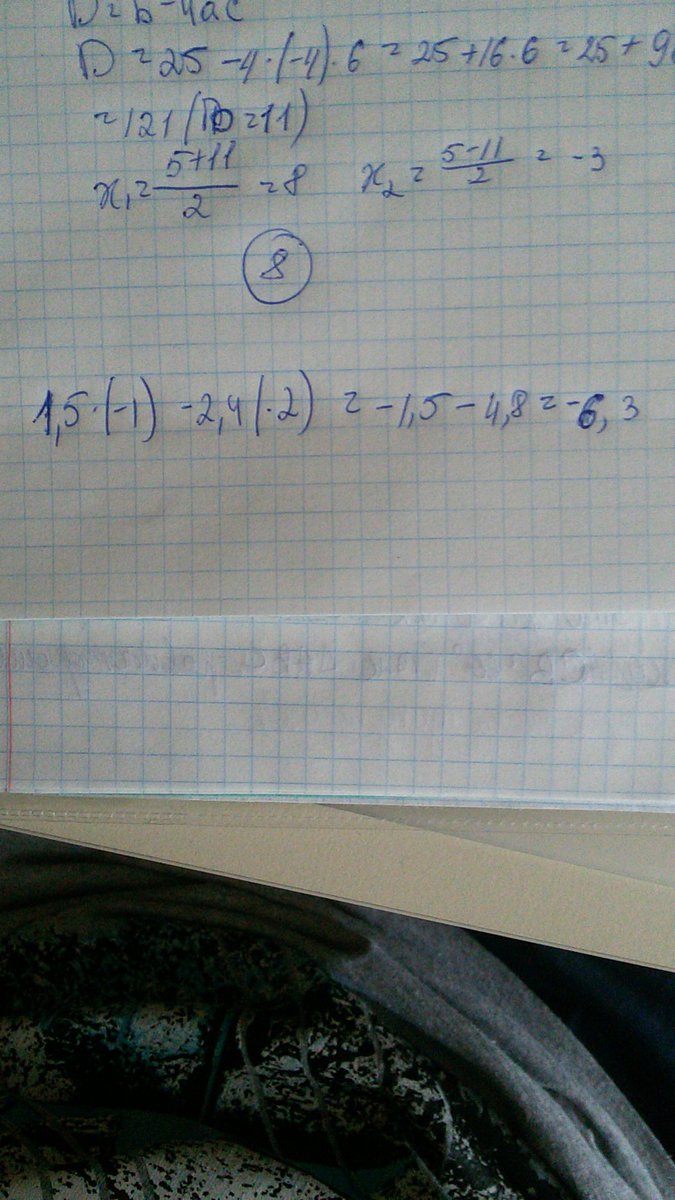 D = b - 4ac
D = 25 - 4·(-4)·6 = 25 + 16·6 = 25 + 9
= 121 (√D = 11)
x₁ = (5+11)/2 = 8 x₂ = (5-11)/2 = -3
8
1,5·(-1) - 2,4(·2) = -1,5 - 4,8 = -6,3